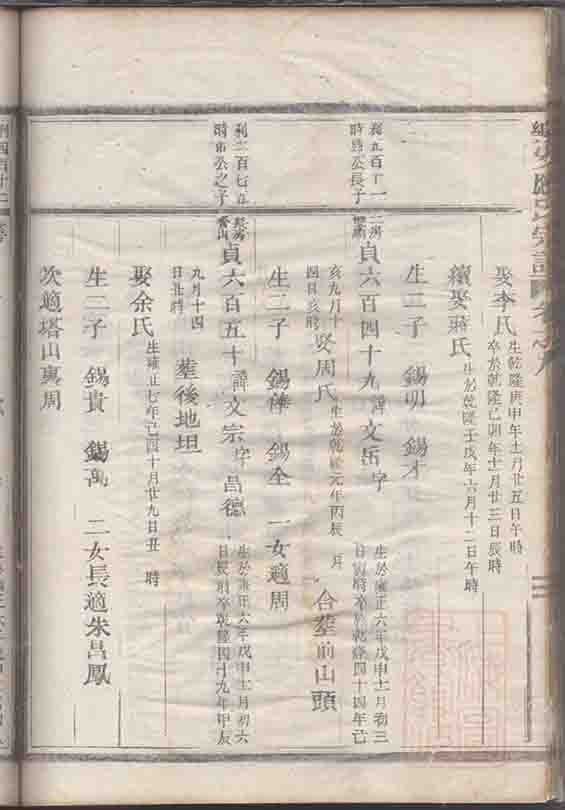 娶李氏
生乾隆庚申年十一月廿五日午時
卒於乾隆己卯年十二月廿三日辰時
續娶蔣氏
生於乾隆壬戌年六月十二日午時
生二子 錫明 錫才
利五百十一
時爲公長子
二房
貞六百四十九
諱文岳字
生於雍正六年戊申十二月初三
卒於乾隆四十四年己
亥九月十
四日亥時
娶周氏
生於乾隆元年丙辰 月
合葬前山頭
生二子 錫華 錫全 一女適周
利二百七
時 公之子
貞六百五十
諱文宗字昌德
生於雍正六年戊申十二月初六
日 時卒乾隆四十九年甲辰
九月十四
日 時
葬後地坦
娶余氏
生雍正七年己酉十月廿九日丑 時
生二子 錫貴 錫萬 二女長適朱昌鳳
次適塔山裏周